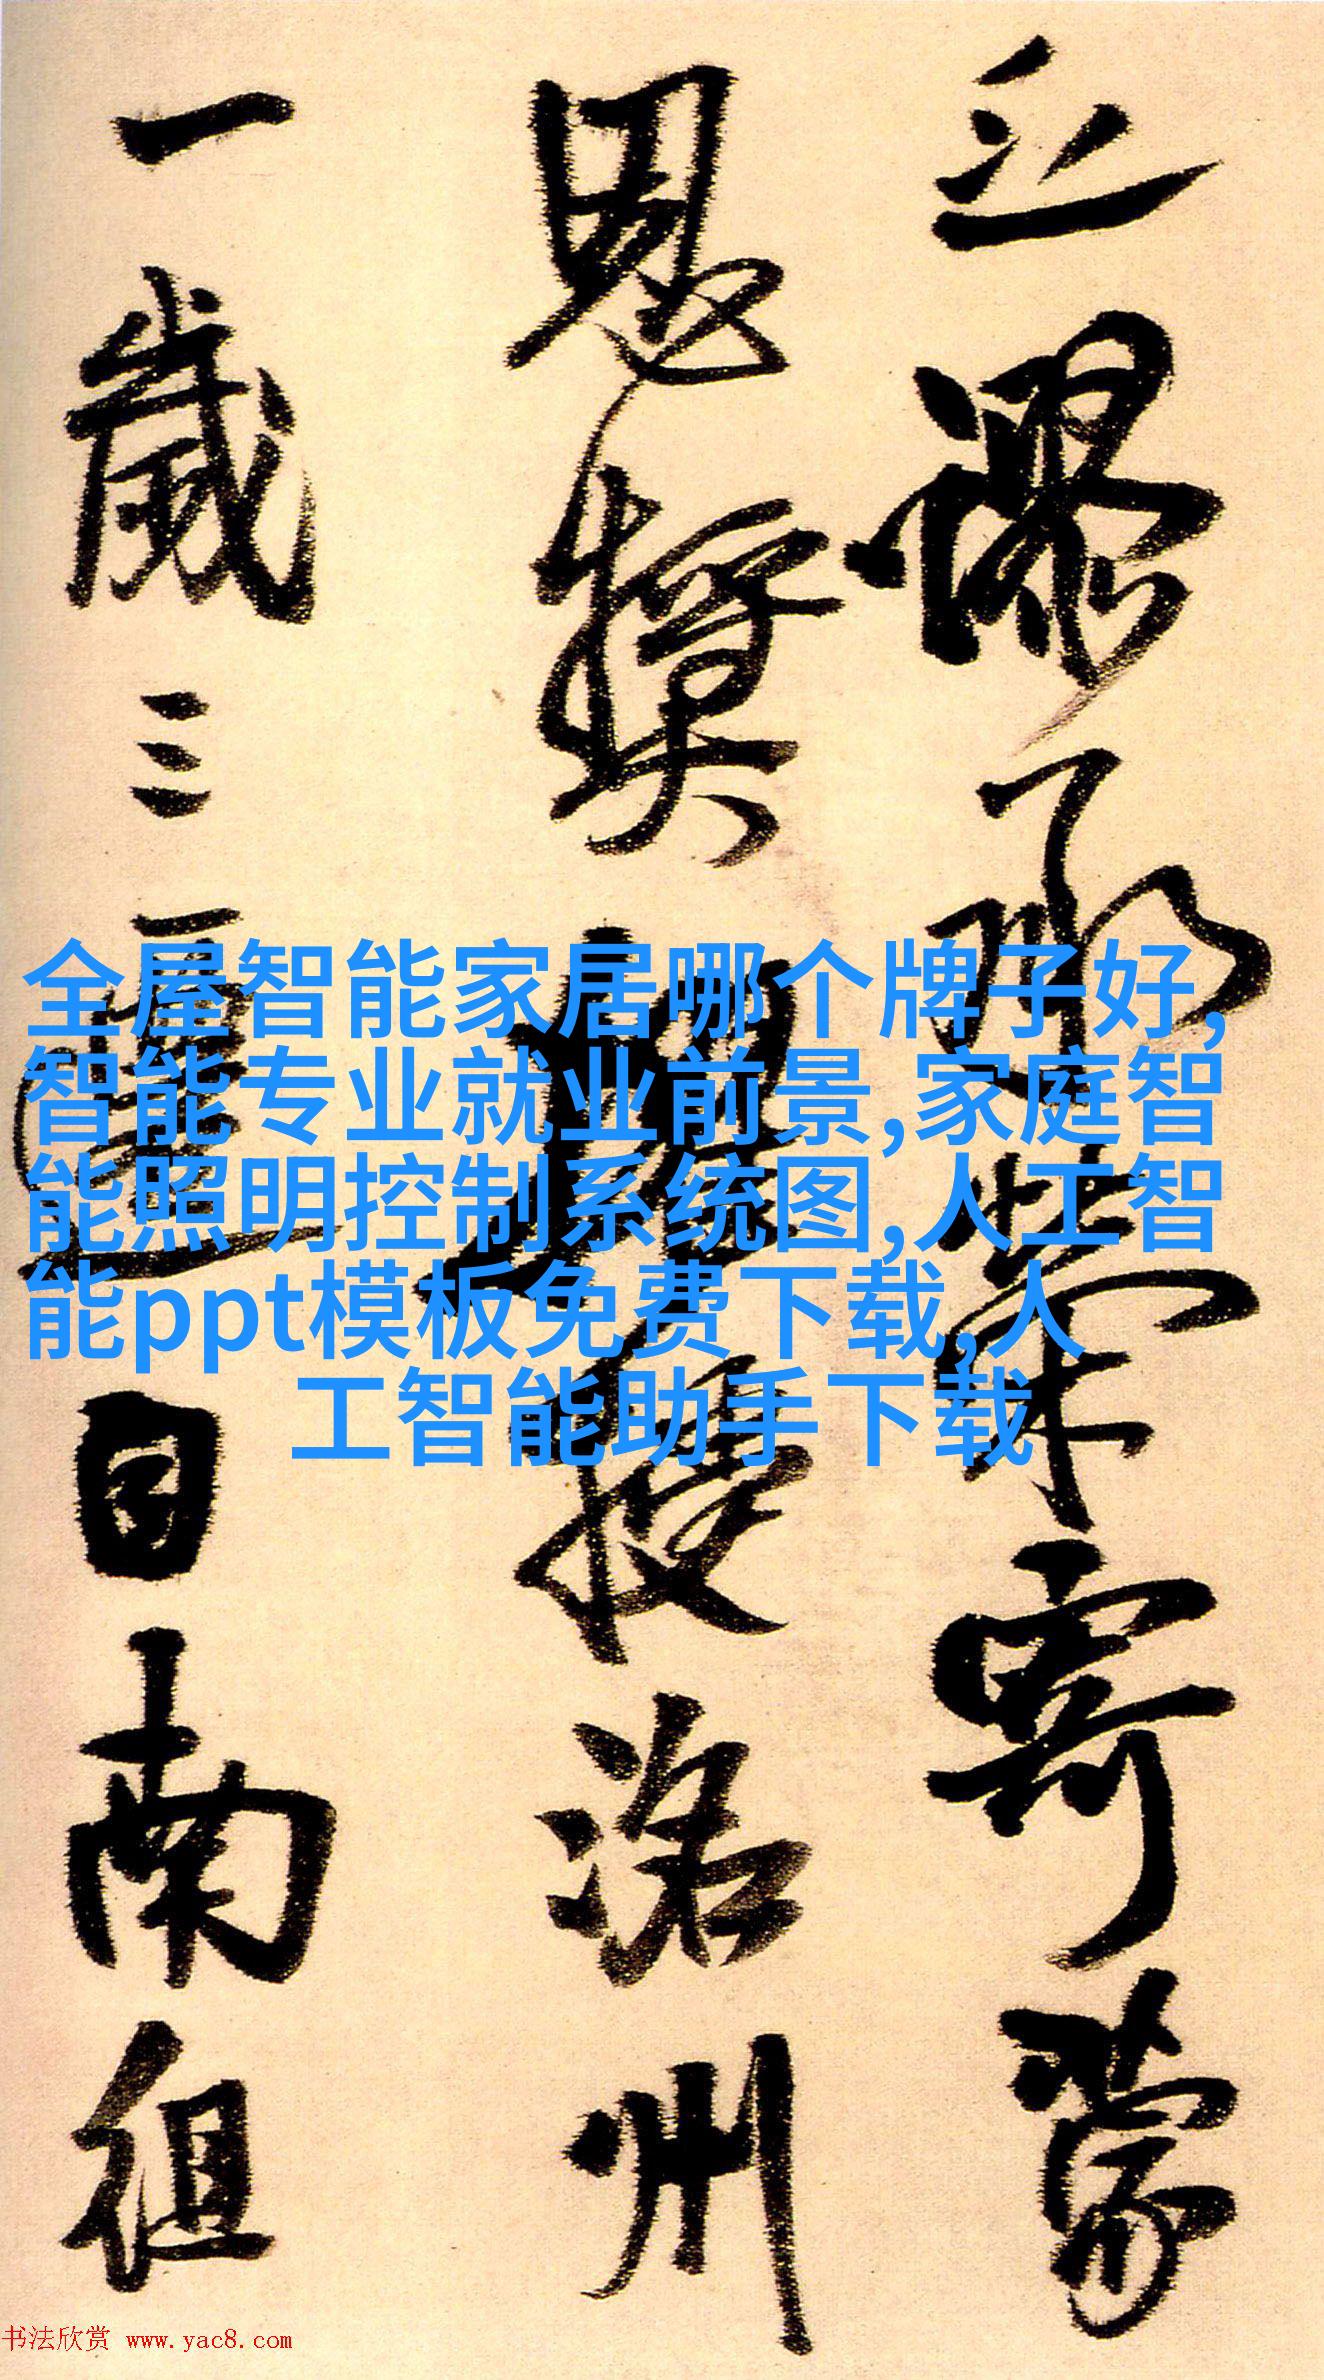 謬承榮寄蒙
恩獎擢授洛州
一歲三遷自南徂
全屋智能家居哪个牌子好,
智能专业就业前景,家庭智
能照明控制系统图,人工智
能ppt模板免费下载,人
工智能助手下载
书法欣赏 www.yac8.com